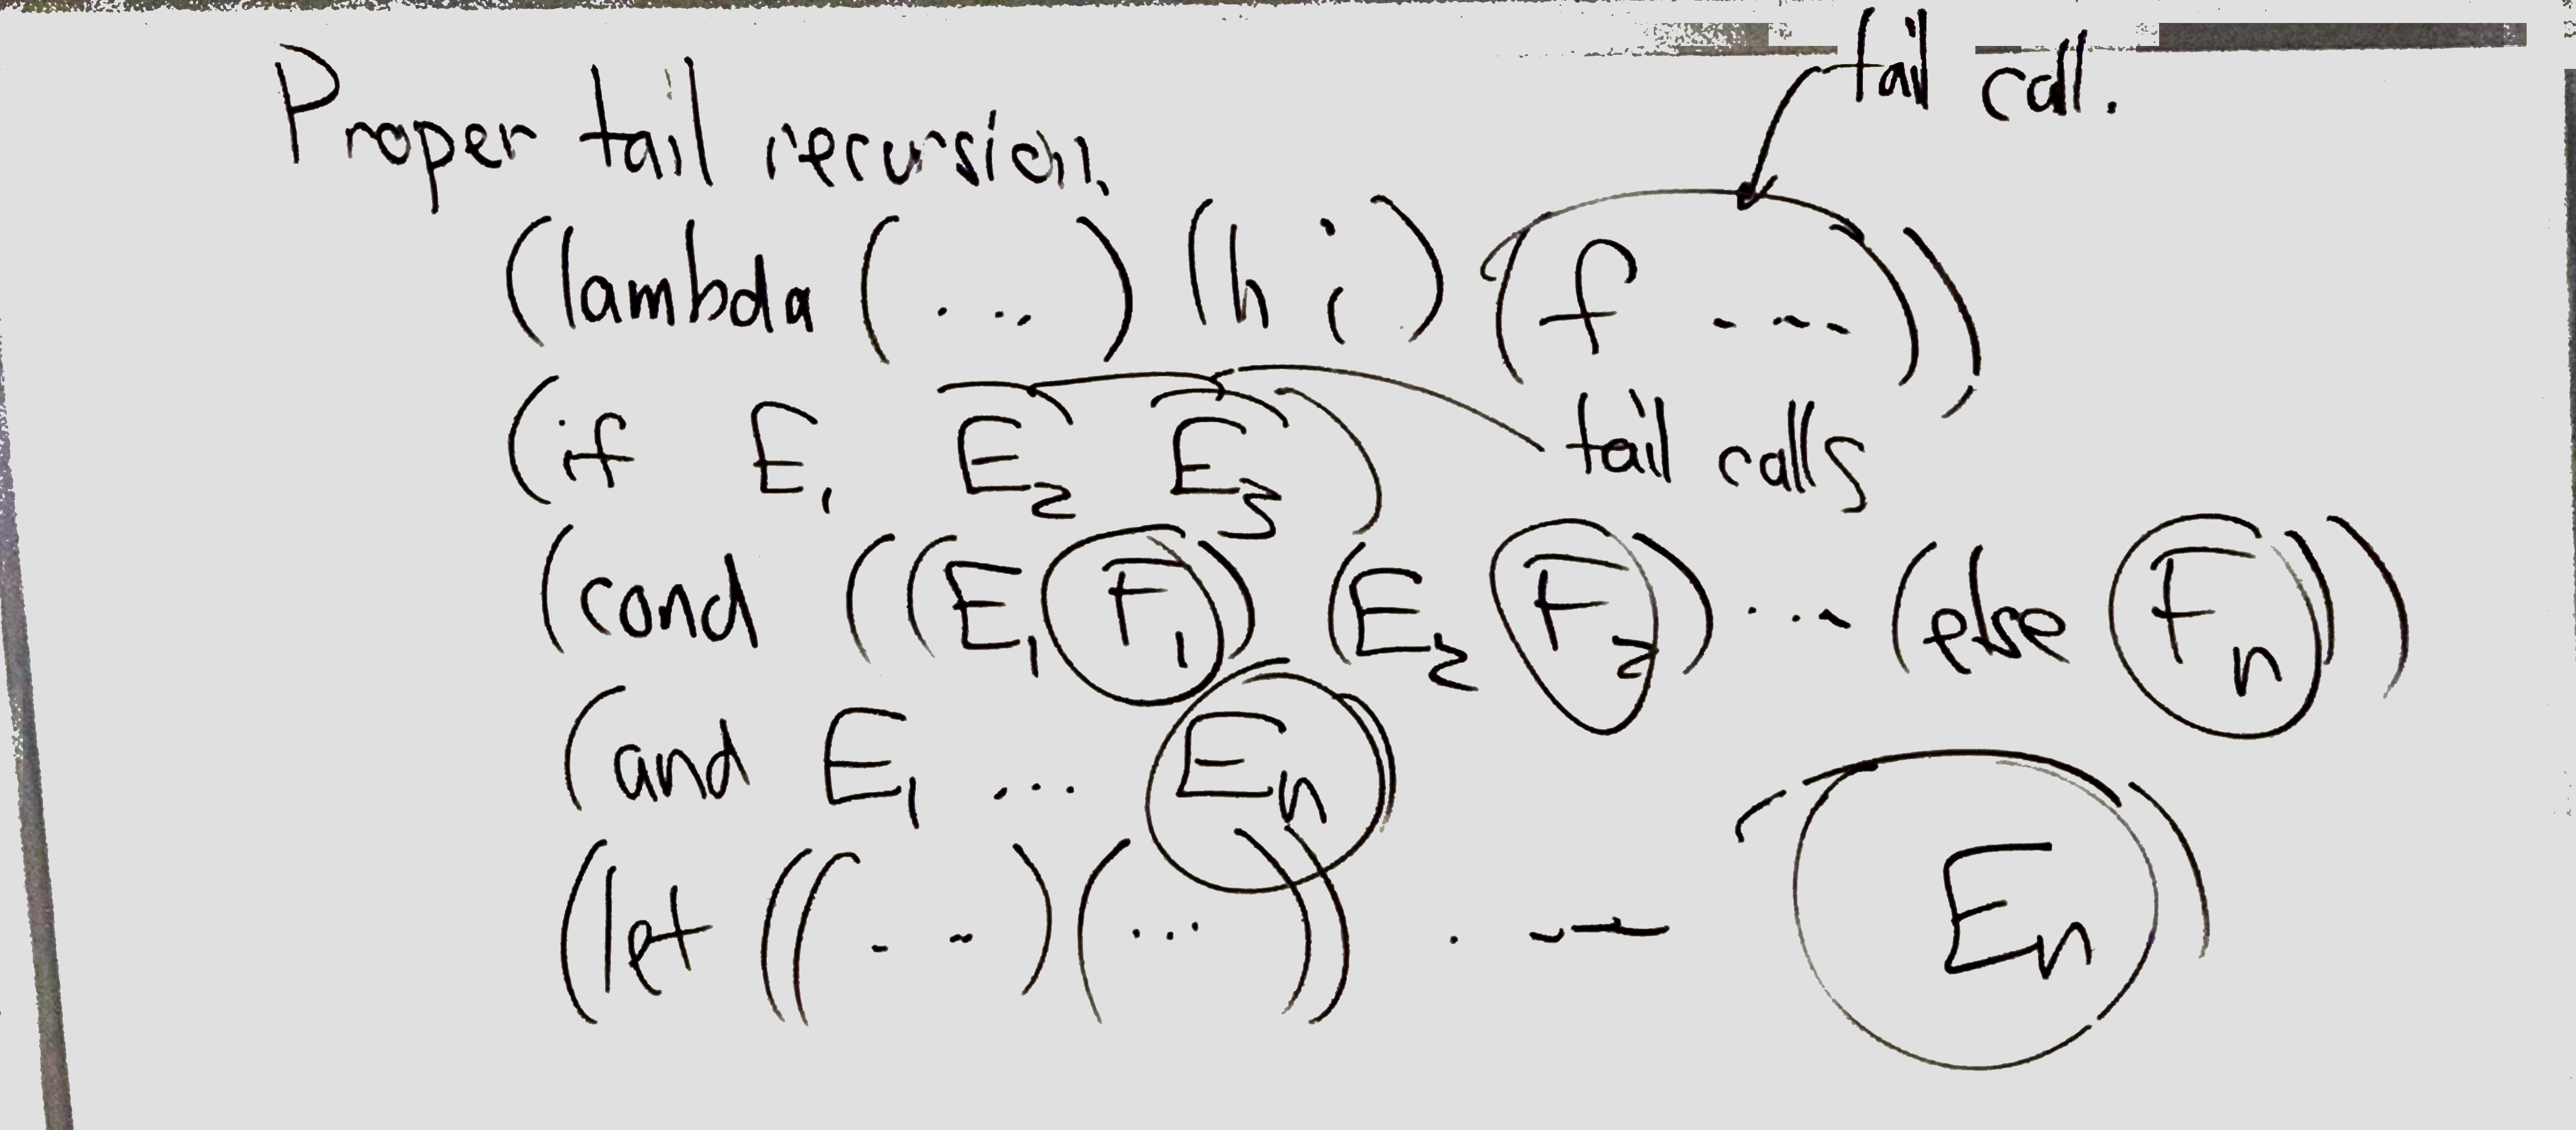 tail call.
Proper tail recursion.
(lambda (...) (h i) (f ...))
(if E₁ E₂ E₃) tail calls
(cond ((E₁ F₁) (E₂ F₂) ... (else Fₙ))
(and E₁ ... Eₙ)
(let ((...) (...)) ... Eₙ)